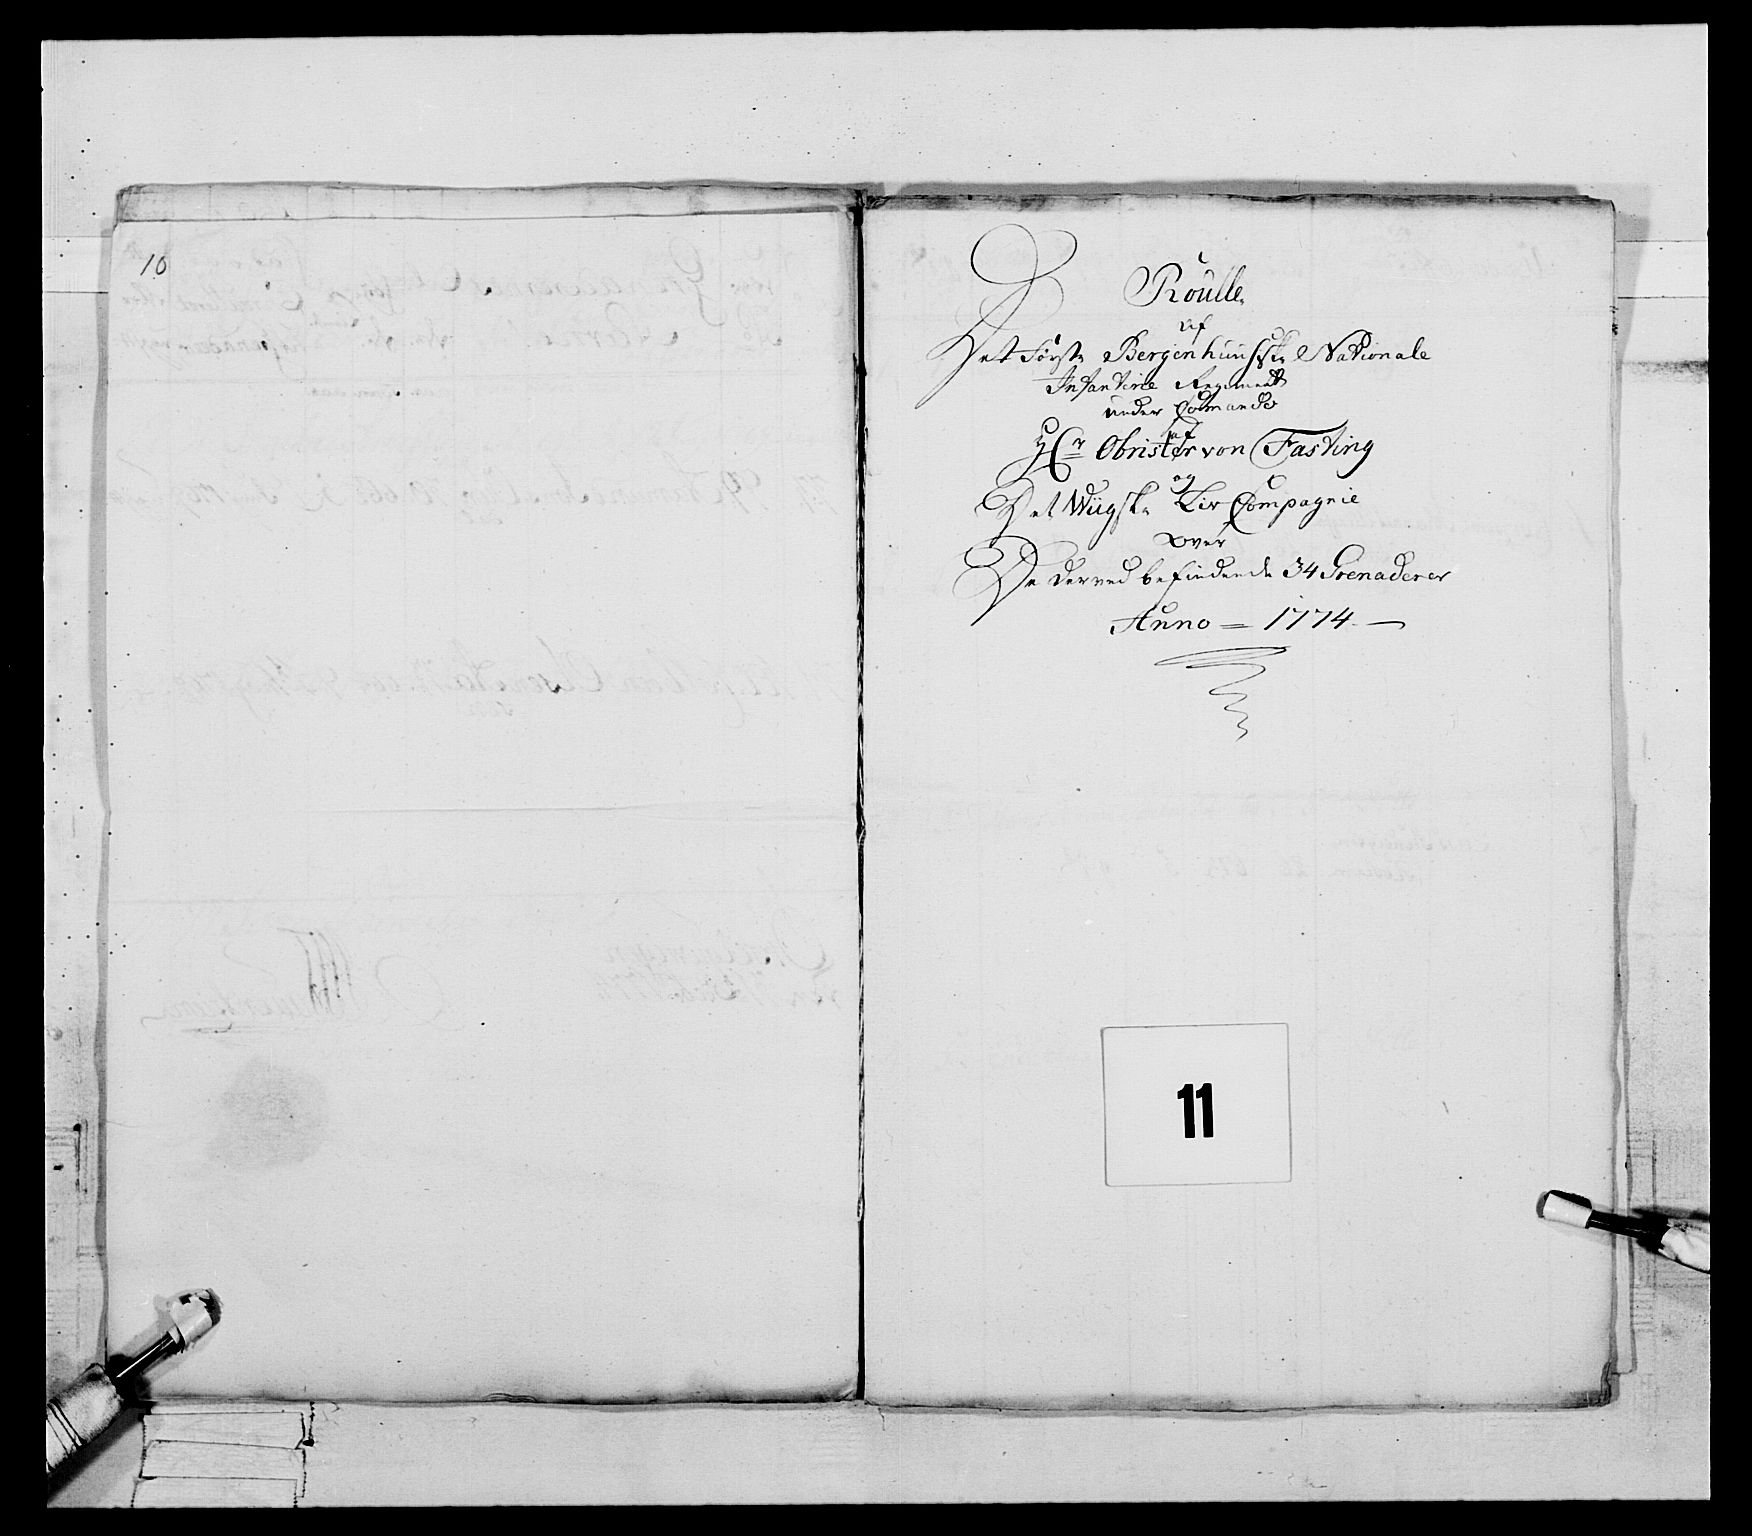 10
Roulle
af
Det Første Bergenhuusske Nationale
Infanterie Regiment
under Comando
af
Hr Obrister von Fasting
og
Det Wiigske Liv Compagnie
over
De derved befindende 34 Grenaderer
Anno = 1774
11